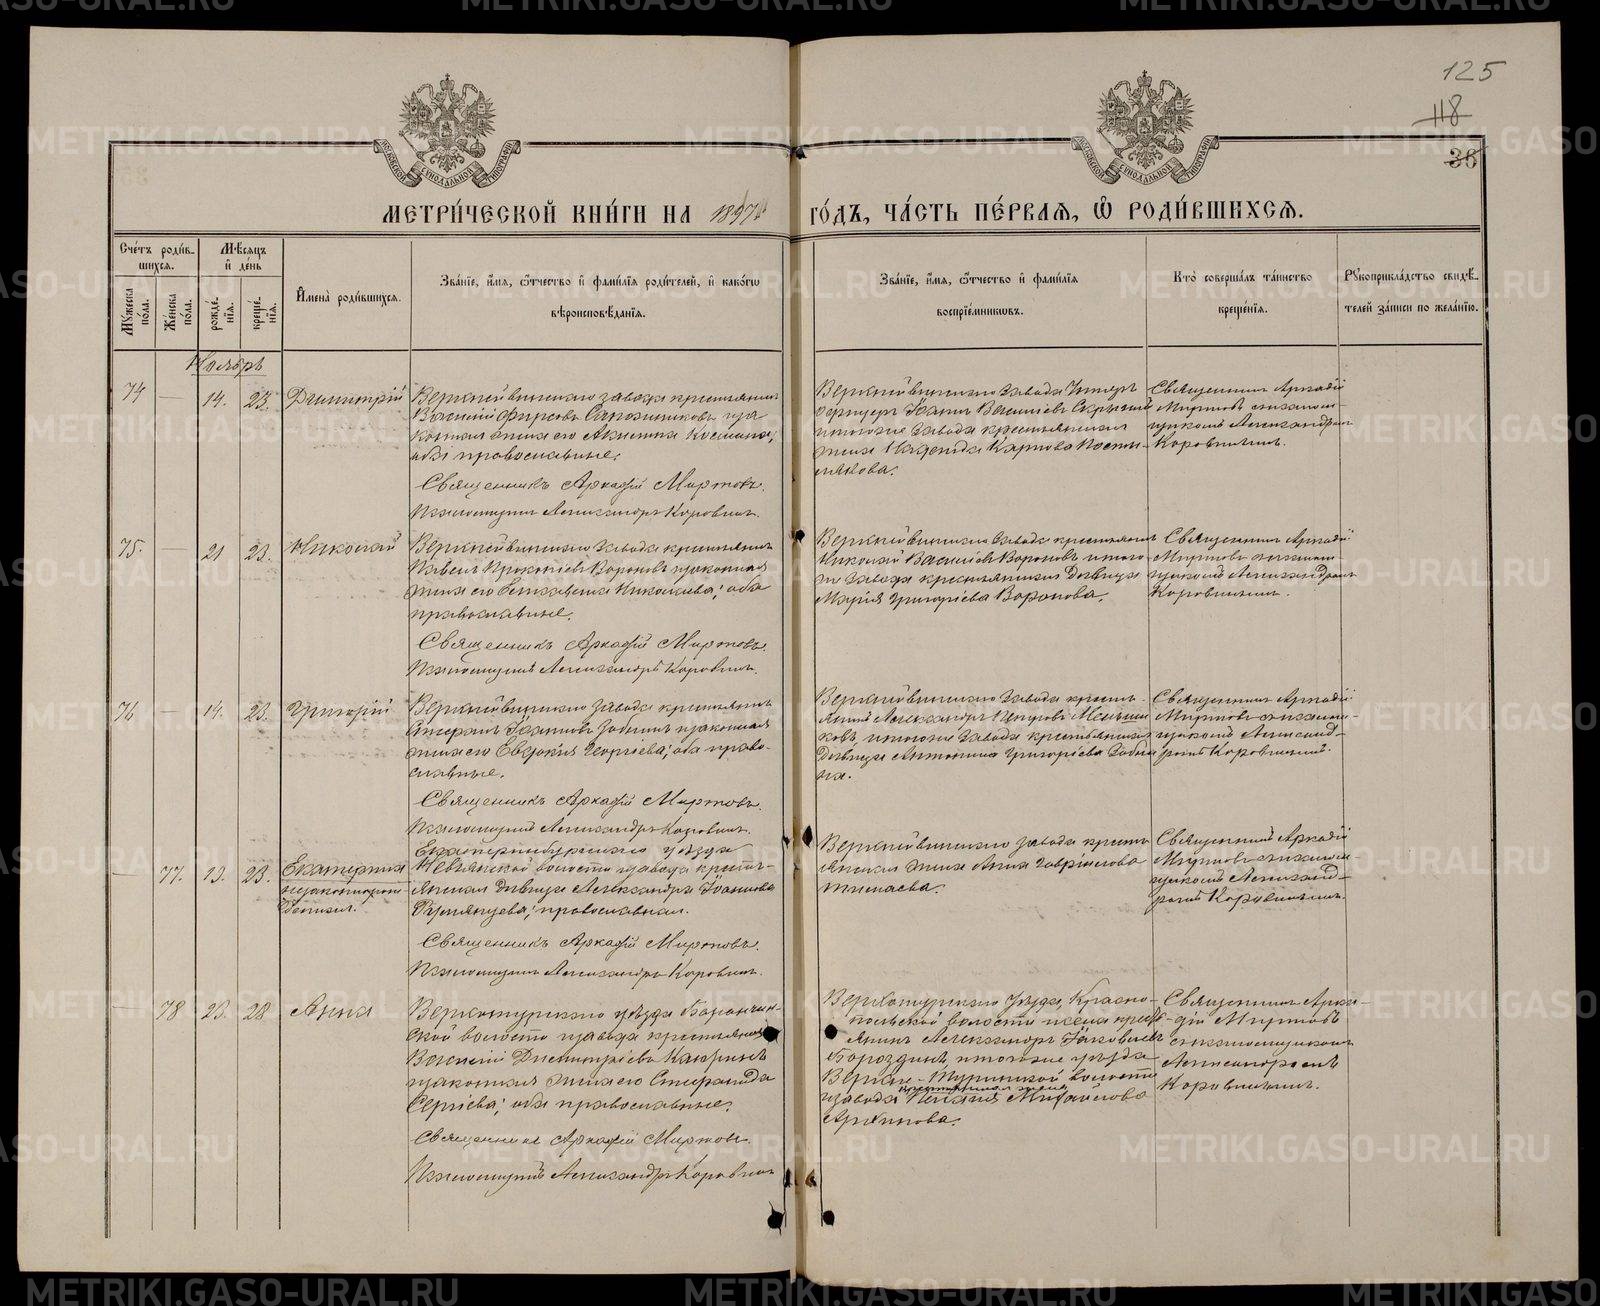 125
118
36
МОСКОВСКОЙ СѴНОДАЛЬНОЙ ТИПОГРАФІИ
МОСКОВСКОЙ СѴНОДАЛЬНОЙ ТИПОГРАФІИ
МЕТРИ́ЧЕСКОЙ КНИ́ГИ НА 1897й ГО́ДЪ, ЧА́СТЬ ПЕ́РВАЯ, Ѡ РОДИ́ВШИХСЯ.
Сче́тъ роди́в-
шихся.
Мѣсяцъ
и де́нь
Мꙋжеска по́ла.
Же́нска по́ла.
рожде́нія.
креще́нія.
Имена̀ роди́вшихся.
Зва́ніе, и́мя, ѻ́тчество и фами́лія роди́телей, и како́гѡ
вѣроисповѣ́данія.
Зва́ніе, и́мя, ѻ́тчество и фами́лія
воспріе́мниковъ.
Кто̀ соверша́лъ та́инство
креще́нія.
Рꙋкоприкла́дство свидѣ́-
телей за́писи по жела́нію.
Ноябрь
74 — 14. 23. Димитрій
Верхнейвинскаго завода крестьянинъ
Василій Фирсовъ Сапожниковъ и за-
конная жена его Космина;
оба православные.
Священникъ Аркадій Миртовъ.
Псаломщикъ Александръ Коровинъ.
Верхнейвинскаго завода Унтеръ
Офицеръ Іоаннъ Васильевъ
тогоже завода крестьянская
жена Надежда Карпова
Священникъ Аркадій
Миртовъ съ псалом-
щикомъ Александромъ
Коровинымъ.
75. — 21 23. Николай
Верхнейвинскаго завода крестьянинъ
Павелъ Прокопьевъ Вороновъ и законная
жена его Елизавета Николаева; оба
православные.
Священникъ Аркадій Миртовъ.
Псаломщикъ Александръ Коровинъ.
Верхнейвинскаго завода крестьянинъ
Николай Васильевъ Вороновъ и того-
же завода крестьянская Дѣвица
Марія Григорьева Воронова.
Священникъ Аркадій
Миртовъ съ псалом-
щикомъ Александромъ
Коровинымъ.
76 — 14. 23. Григорій
Верхнейвинскаго завода крестьянинъ
Іоанновъ и законная
жена его Евдокія Георгіева; оба право-
славные.
Священникъ Аркадій Миртовъ.
Псаломщикъ Александръ Коровинъ.
Верхнейвинскаго завода кресть-
янинъ Александръ Петровъ Меньши-
ковъ, и тогоже завода крестьянская
Дѣвица Антонина Григорьева
Священникъ Аркадій
Миртовъ съ псалом-
щикомъ Александ-
ромъ Коровинымъ.
— 77. 19. 23. Екатерина
незаконнорож-
денная.
Екатеринбургскаго уѣзда
Невьянской волости и завода кресть-
янская дѣвица Александра Іоаннова
Румянцева; православная.
Священникъ Аркадій Миртовъ.
Псаломщикъ Александръ Коровинъ.
Верхнейвинскаго завода кресть-
янская жена Анна Гавриилова
Священникъ Аркадій
Миртовъ съ псалом-
щикомъ Александ-
ромъ Коровинымъ.
— 78 23. 28 Анна
Верхотурскаго уѣзда Баранчин-
ской волости и завода крестьянинъ
Василій Димитріевъ
и законная жена его Стефанида
Сергіева; оба православные.
Священникъ Аркадій Миртовъ.
Псаломщикъ Александръ Коровинъ
Верхотурскаго Уѣзда, Красно-
польской волости
Александръ Іаковлевъ
Бороздинъ, и тогоже уѣзда
Верхне-Туринской волости
крестьянская жена
и завода Михайлова
Архипова.
Священникъ Арка-
дій Миртовъ
съ псаломщикомъ
Александромъ
Коровинымъ.
METRIKI.GASO-URAL.RU